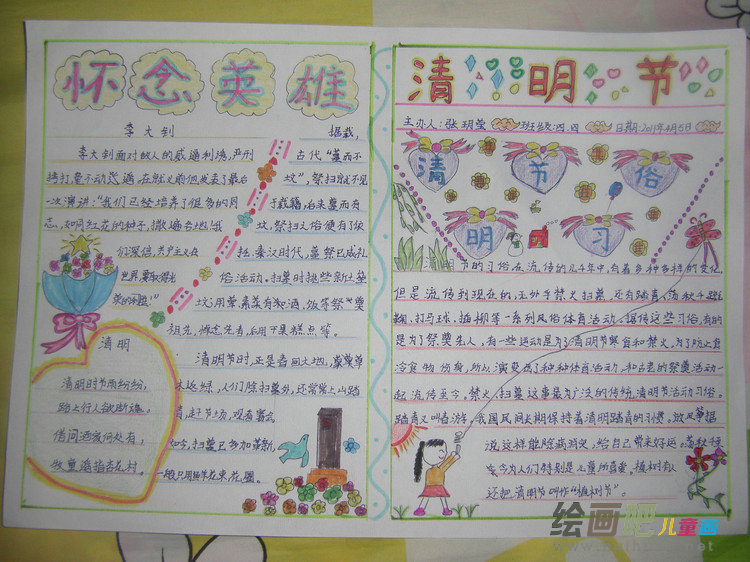 怀念英雄
李大钊
李大钊面对敌人的威逼利诱,严刑
拷打,毫不动
一次演讲:"我们已经培养了很多的同
志,如同红花的种子,撒遍各地!我
们深信,共产主义在
世界,
清明
清明时节雨纷纷,
路上行人欲断魂。
借问酒家何处有,
牧童遥指杏花村。
据载,
古代"墓而不
坟",祭扫
于载籍,后来墓而有
坟,祭扫之俗便有了依
托。秦汉时代,墓祭已成礼
俗活动。扫墓时
祖先,
清明节时,正是春回大地,
人们除扫墓外,还常常上山踏
青,赶节场,观看赛会
如今,扫墓已多加革新,
一般只用鲜花束、花圈。
清明节
主办人:张玥莹 班级:四.四 日期:2011年4月5日
清 节 俗
明 习
清明节的习俗在流传的几千年中,有着多种多样的变化,
但是流传到现在的,无外乎禁火扫墓,还有踏青、荡秋千、蹴
鞠、打马球、插柳等一系列风俗体育活动。据传这些习俗,有的
是为了祭奠先人,有一些运动是为了清明节要寒食禁火,为了防止寒
冷食物伤身,所以演变成了种种体育活动,和古老的祭奠活动一
起流传至今。禁火、扫墓这事最为广泛的传统清明节活动习俗。
踏青又叫春游。我国民间长期保持着清明踏青的习惯。放风筝据
说这样能除病消灾,给自己带来好运。荡秋千
至今为人们特别是儿童所喜爱。植树有人
还把清明节叫作"植树节"。
绘画吧儿童画